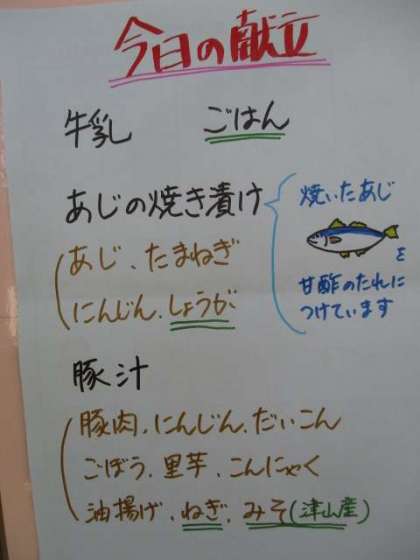 今日の献立
牛乳　ごはん
あじの焼き漬け
あじ、たまねぎ
にんじん、しょうが
焼いたあじ
を
甘酢のたれに
つけています
豚汁
豚肉、にんじん、だいこん
ごぼう、里芋、こんにゃく
油揚げ、ねぎ、みそ(津山産)